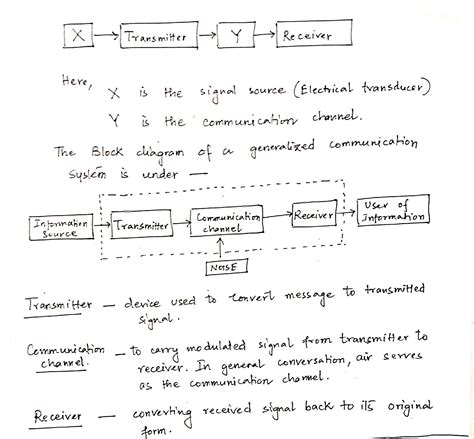 X → Transmitter → Y → Receiver
Here, X is the signal source (Electrical transducer)
Y is the communication channel.
The Block diagram of a generalized communication
System is under —
Information Source
Transmitter
Communication channel
Receiver
User of Information
NOISE
Transmitter — device used to convert message to transmitted
signal.
Communication channel. — to carry modulated signal from transmitter to
receiver. In general conversation, air serves
as the communication channel.
Receiver — converting received signal back to its original
form.